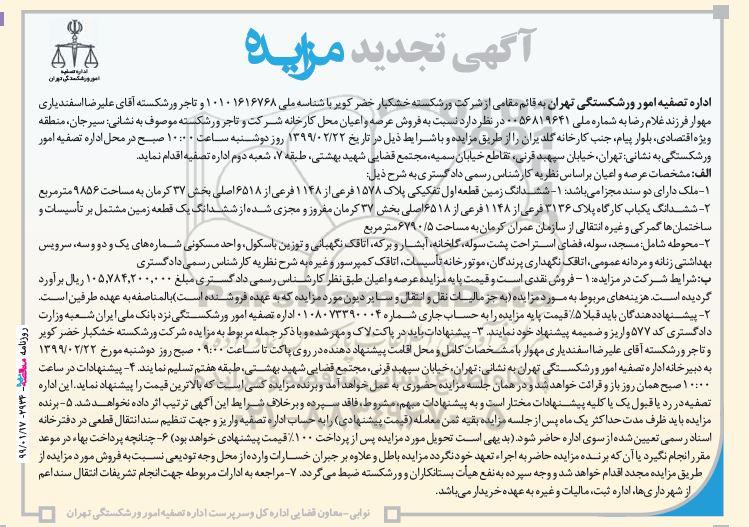 آگهی تجدید مزایده
اداره تصفیه
امور ورشکستگی تهران
اداره تصفیه امور ورشکستگی تهران به قائم مقامی از شرکت ورشکسته خشکبار خضر کویر با شناسه ملی ۱۰۱۰۱۶۱۶۷۶۸ و تاجر ورشکسته آقای علیرضا اسفندیاری
مهوار فرزند غلام رضا به شماره ملی ۰۰۵۶۸۱۹۶۴۱ در نظر دارد نسبت به فروش عرصه و اعیان محل کارخانه شرکت و تاجر ورشکسته موصوف به نشانی: سیرجان، منطقه
ویژه اقتصادی، بلوار پیام، جنب کارخانه گلدیران را از طریق مزایده و با شرایط ذیل در تاریخ ۱۳۹۹/۰۲/۲۲ روز دوشنبه ساعت ۱۰:۰۰ صبح در محل اداره تصفیه امور
ورشکستگی به نشانی: تهران، خیابان سپهبد قرنی، تقاطع خیابان سمیه، مجتمع قضایی شهید بهشتی، طبقه ۷، شعبه دوم اداره تصفیه اقدام نماید.
الف: مشخصات عرصه و اعیان براساس نظریه کارشناس رسمی دادگستری به شرح ذیل:
۱- ملک دارای دو سند مجزا می‌باشد: ۱- ششدانگ زمین قطعه اول تفکیکی پلاک ۱۵۷۸ فرعی از ۱۱۴۸ فرعی از ۶۵۱۸ اصلی بخش ۳۷ کرمان به مساحت ۹۸۵۶ مترمربع
۲- ششدانگ یکباب کارگاه پلاک ۳۱۳۶ فرعی از ۱۱۴۸ فرعی از ۶۵۱۸ اصلی بخش ۳۷ کرمان مفروز و مجزی شده از ششدانگ یک قطعه زمین مشتمل بر تأسیسات و
ساختمان‌ها گمرکی و غیره انتقالی از سازمان عمران کرمان به مساحت ۶۷۹۰/۵ مترمربع
۲- محوطه شامل: مسجد، سوله، فضای استراحت پشت سوله، گلخانه، آبشار و برکه، اتاقک نگهبانی و توزین باسکول، واحد مسکونی شماره‌های یک و دو و سه، سرویس
بهداشتی زنانه و مردانه عمومی، اتاقک نگهداری پرندگان، موتورخانه تأسیسات، اتاقک کمپرسور و غیره به شرح نظریه کارشناس رسمی دادگستری
ب: شرایط شرکت در مزایده: ۱- فروش نقدی است و قیمت پایه مزایده عرصه و اعیان طبق نظر کارشناس رسمی دادگستری مبلغ ۱۰۵,۷۸۴,۲۰۰,۰۰۰ ریال برآورد
گردیده است. هزینه‌های مربوط به مورد مزایده (به جز مالیات نقل و انتقال و سایر دیون مورد مزایده که به عهده فروشنده است) بالمناصفه به عهده طرفین است.
۲- پیشنهاددهندگان باید قبلا ۵٪ قیمت پایه مزایده را به حساب جاری شماره ۰۱۰۸۰۷۳۳۹۰۰۰۴ اداره تصفیه امور ورشکستگی نزد بانک ملی ایران شعبه وزارت
دادگستری کد ۵۷۷ واریز و ضمیمه پیشنهاد خود نمایند. ۳- پیشنهادات باید در پاکت لاک و مهر شده و با ذکر جمله مربوط به مزایده شرکت ورشکسته خشکبار خضر کویر
و تاجر ورشکسته آقای علیرضا اسفندیاری مهوار با مشخصات کامل و محل اقامت پیشنهاددهنده در روی پاکت تا ساعت ۰۹:۰۰ صبح روز دوشنبه مورخ ۱۳۹۹/۰۲/۲۲
به دبیرخانه اداره تصفیه امور ورشکستگی تهران به نشانی: تهران، خیابان سپهبد قرنی، مجتمع قضایی شهید بهشتی، طبقه هفتم تسلیم نمایند. ۴- پیشنهادات در ساعت
۱۰:۰۰ صبح همان روز باز و قرائت خواهد شد و در همان جلسه مزایده حضوری به عمل خواهد آمد و برنده مزایده کسی است که بالاترین قیمت را پیشنهاد نماید. این اداره
تصفیه در رد یا قبول یک یا کلیه پیشنهادات مختار است و به پیشنهادات مبهم، مشروط، فاقد سپرده و برخلاف شرایط این آگهی ترتیب اثر داده نخواهدشد. ۵- برنده
مزایده باید ظرف مدت حداکثر یک ماه پس از جلسه مزایده بقیه ثمن معامله (قیمت پیشنهادی) را به حساب اداره تصفیه واریز و جهت تنظیم سند انتقال قطعی در دفترخانه
اسناد رسمی تعیین شده از سوی اداره حاضر شود. (بدیهی است تحویل مورد مزایده پس از پرداخت ۱۰۰٪ قیمت پیشنهادی خواهد بود) ۶- چنانچه پرداخت بهاء در موعد
مقرر انجام نگیرد یا آن که برنده مزایده حاضر به اجراء تعهد خود نگردد مزایده باطل و علاوه بر جبران خسارات وارده از محل وجه تودیعی نسبت به فروش مورد مزایده از
طریق مزایده مجدد اقدام خواهد شد و وجه سپرده به نفع هیأت بستانکاران و ورشکسته ضبط می‌گردد. ۷- مراجعه به ادارات مربوطه جهت انجام تشریفات انتقال سند اعم
از شهرداری‌ها، اداره ثبت، مالیات و غیره به عهده خریدار می‌باشد.
نوابی - معاون قضایی اداره کل و سرپرست اداره تصفیه امور ورشکستگی تهران
روزنامه ۲۹۳۴- ۹۹/۰۱/۱۷